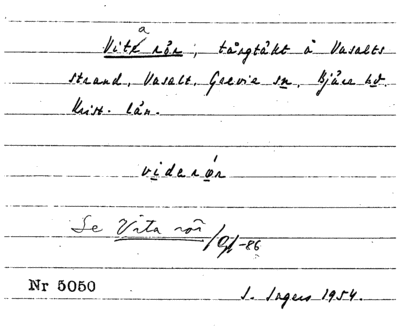 Vita rör, tångtäkt å Vasalts
strand, Vasalt, Grevie sn, Bjäre hd.
Krist. län.
viderör
Se Vita rör /GJ-86
Nr 5050
S. Ingers 1954.